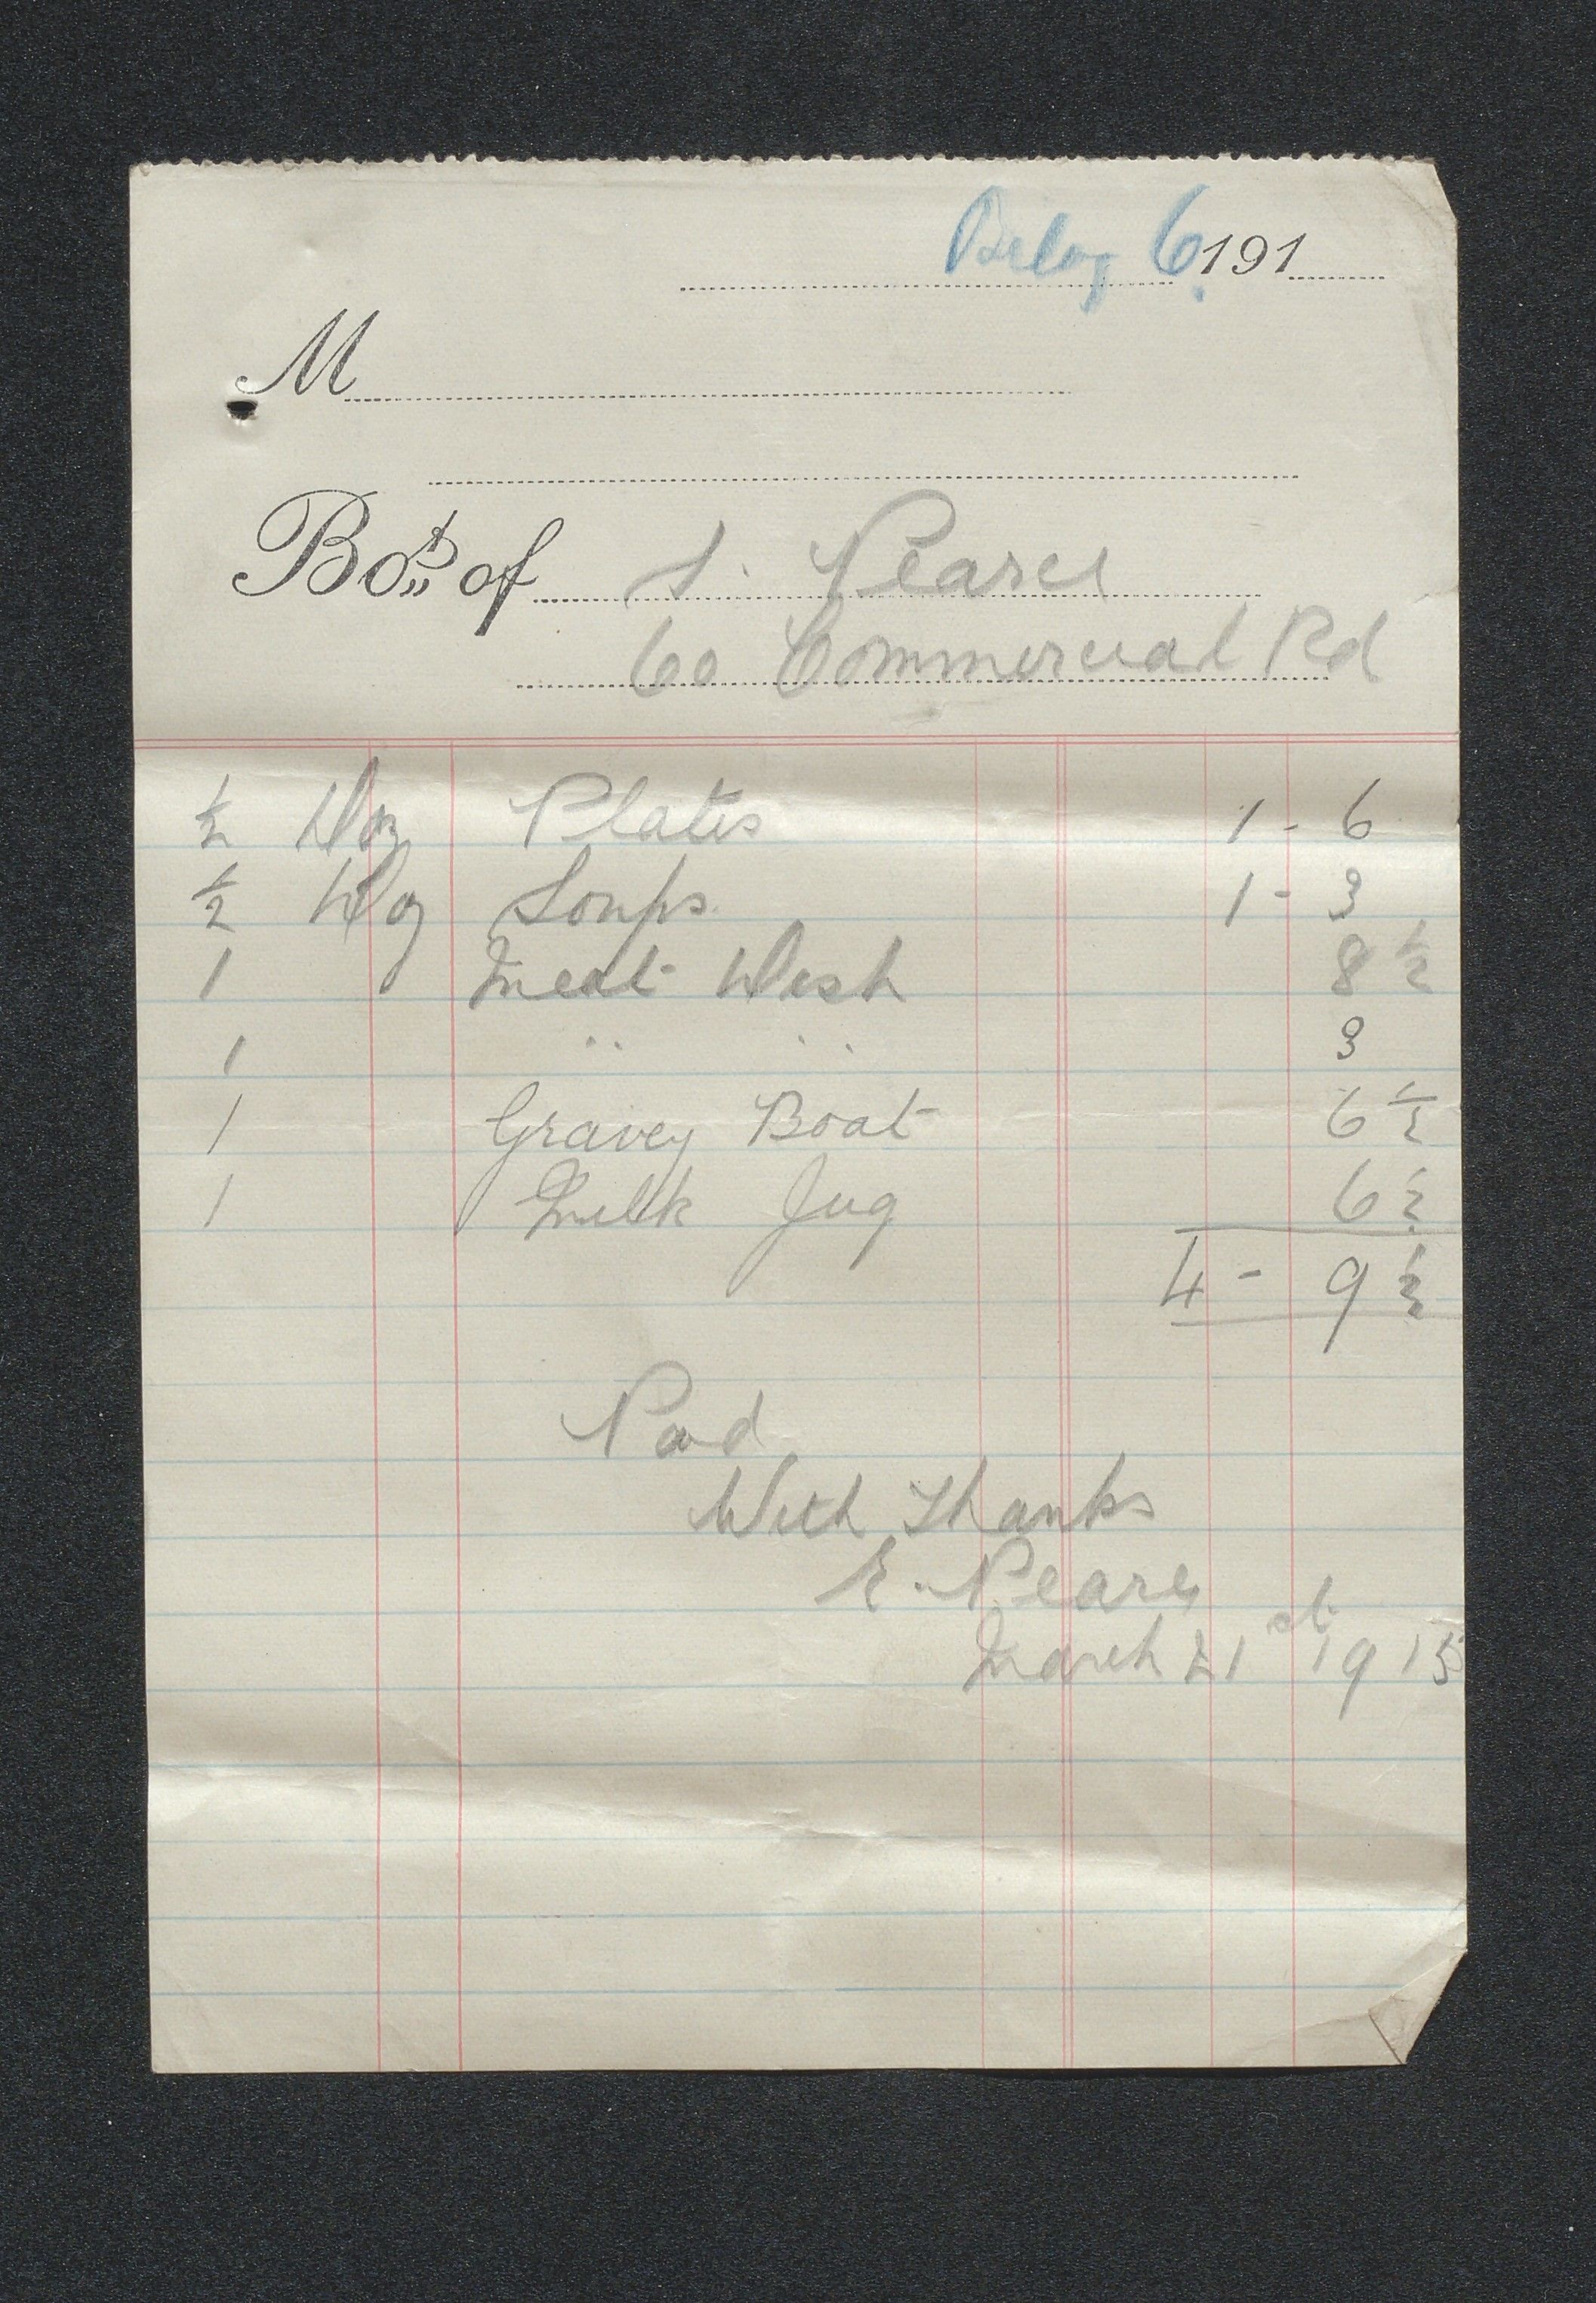 Belag 6. 191
M
Bot. of S. Pearce
60 Commercial Rd
½ Doz Plates 1 - 6
½ Doz Soups 1 - 3
1 Meat Dish 8 ½
1 " " 3
1 Gravey Boat 6 ½
1 Milk Jug 6 ½
4 - 9 ½
Paid
With Thanks
E. Pearce
March 21st 1915